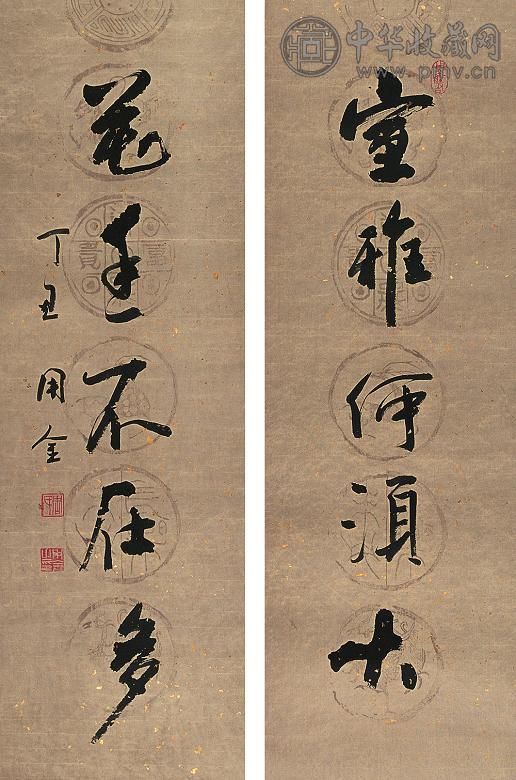 中华收藏网
www.pmv.cn
室雅何須大
花香不在多
丁丑 用金